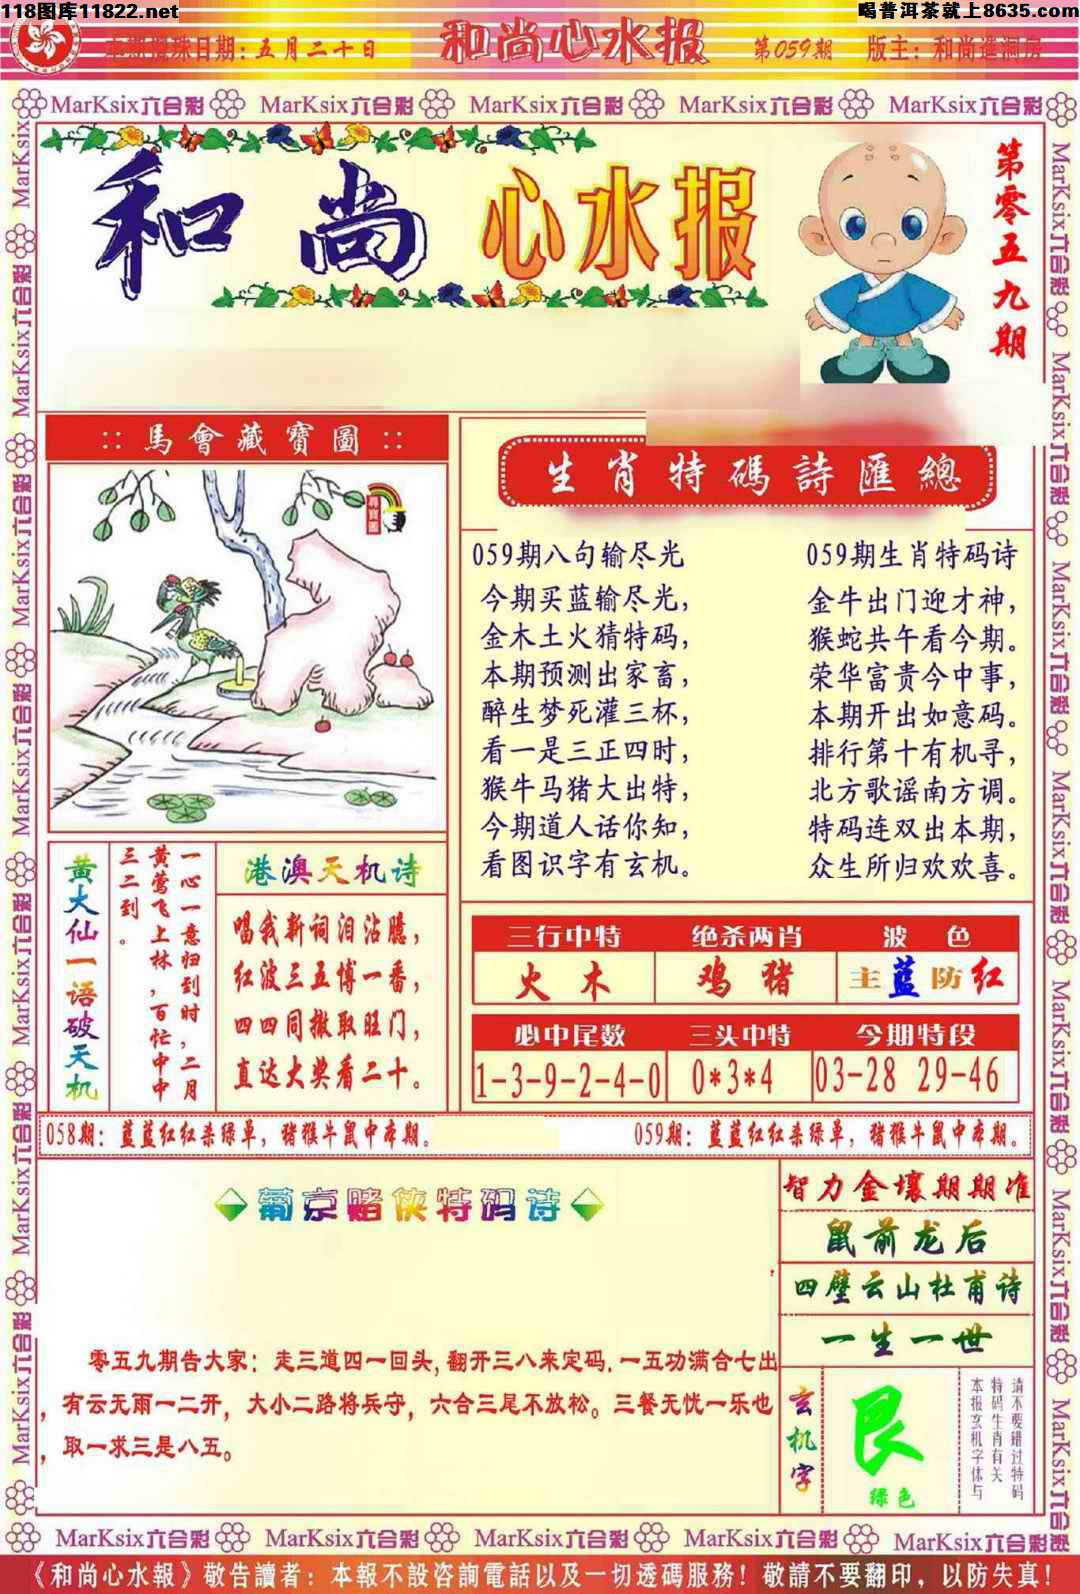 118图库11822.net
喝普洱茶就上8635.com
本期搅珠日期:五月二十日
和尚心水报
第059期
版主:和尚進洞房
MarKsix六合彩 MarKsix六合彩 MarKsix六合彩 MarKsix六合彩 MarKsix六合彩
和尚心水报
第零五九期
::馬會藏寶圖::
尋寶圖
生肖特碼詩匯總
059期八句输尽光
今期买蓝输尽光,
金木土火猜特码,
本期预测出家畜,
醉生梦死灌三杯,
看一是三正四时,
猴牛马猪大出特,
今期道人话你知,
看图识字有玄机。
059期生肖特码诗
金牛出门迎才神,
猴蛇共午看今期。
荣华富贵今中事,
本期开出如意码。
排行第十有机寻,
北方歌谣南方调。
特码连双出本期,
众生所归欢欢喜。
黄大仙一语破天机
一心一意归到时,二月
黄莺飞上林,百忙中中
三二到。
港澳天机诗
唱我新词泪沾臆,
红波三五博一番,
四四同撤取旺门,
直达大奖看二十。
三行中特 绝杀两肖 波色
火木 鸡猪 主蓝防红
必中尾数 三头中特 今期特段
1-3-9-2-4-0 0*3*4 03-28 29-46
058期:蓝蓝红红杀绿单,猪猴牛鼠中本期。
059期:蓝蓝红红杀绿单,猪猴牛鼠中本期。
葡京赌侠特码诗
,
零五九期告大家:走三道四一回头,翻开三八来定码.一五功满合七出
,有云无雨一二开,大小二路将兵守,六合三尾不放松。三餐无忧一乐也
,取一求三是八五。
智力金壤期期准
鼠前龙后
四壁云山杜甫诗
一生一世
玄机字
艮
绿色
请不要错过特码
特码生肖有关
本报玄机字体与
MarKsix六合彩 MarKsix六合彩 MarKsix六合彩 MarKsix六合彩 MarKsix六合彩
《和尚心水報》敬告讀者:本報不設咨詢電話以及一切透碼服務!敬請不要翻印,以防失真!